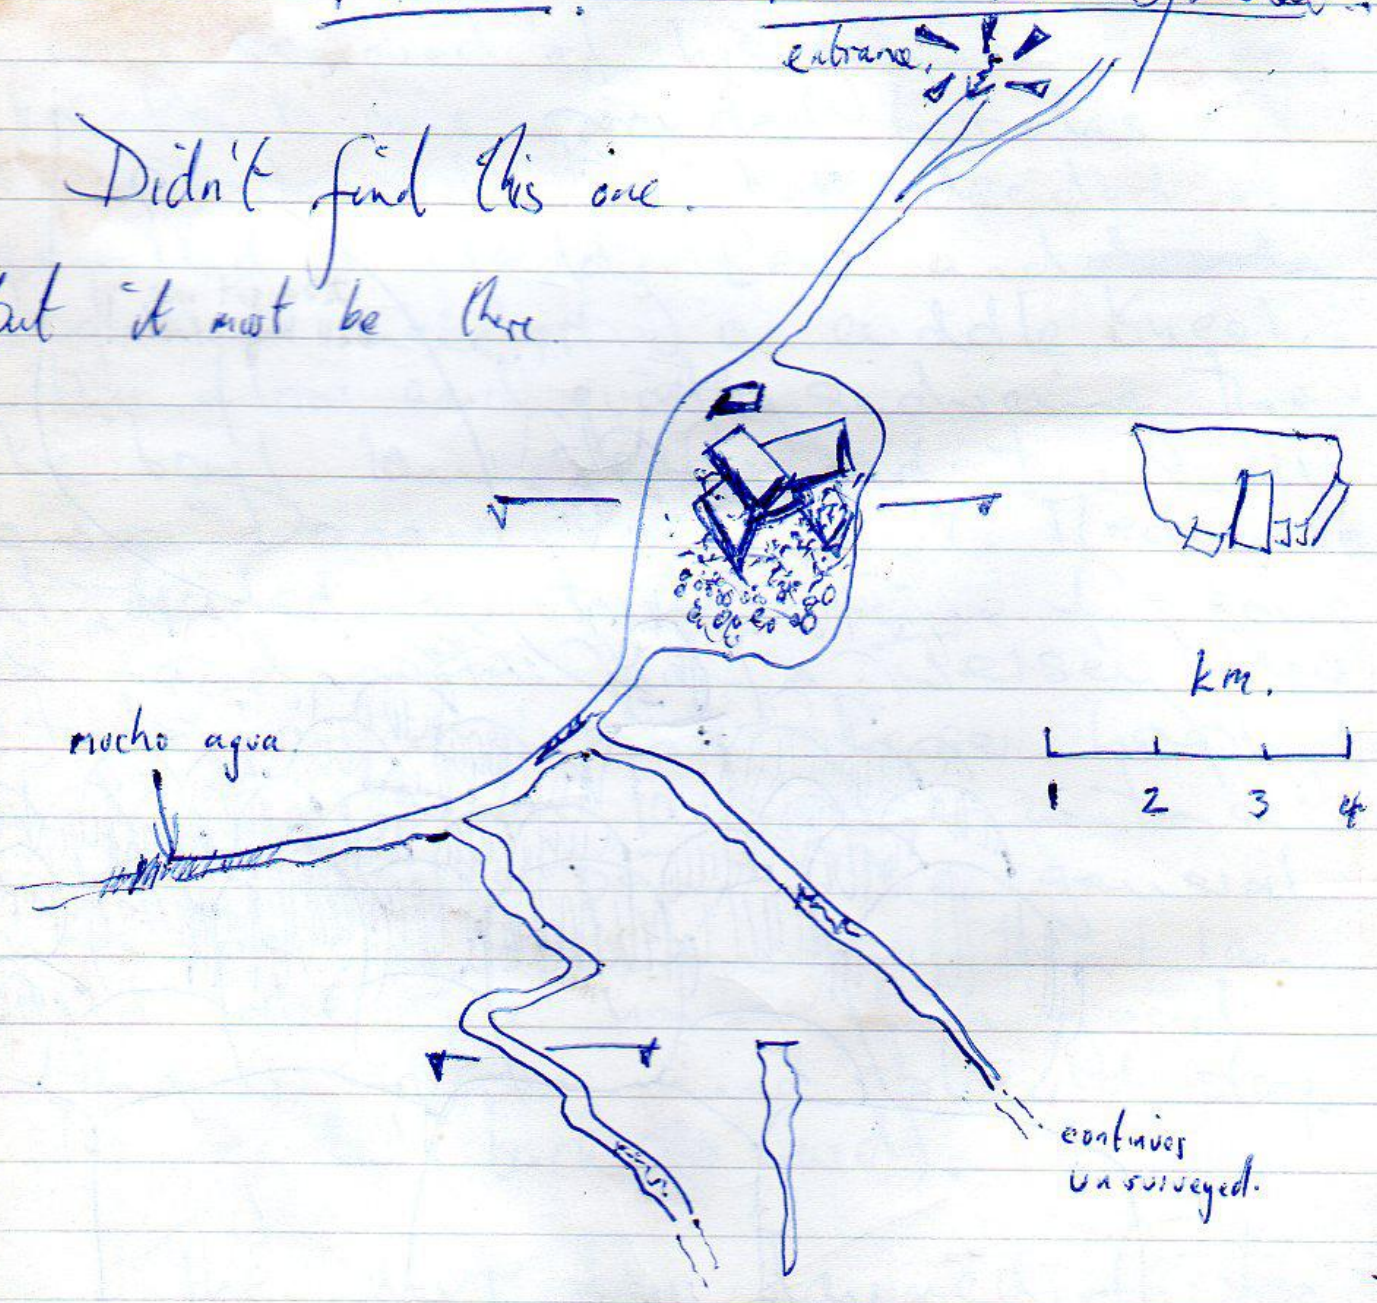 entrance.
Didn't find this one.
but it must be there.
km.
mucho agua.
1 2 3 4
continues
unsurveyed.